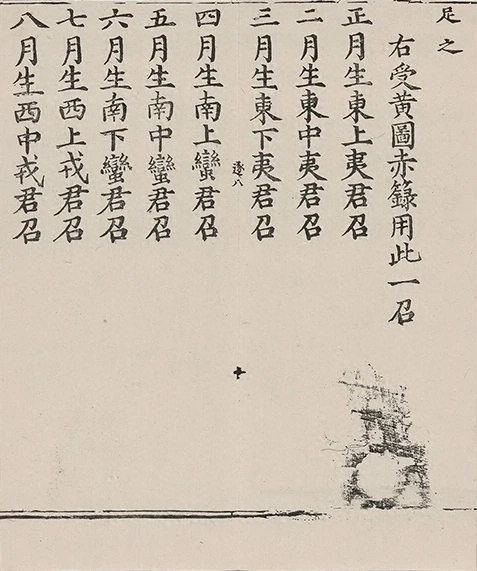 足之
右受黄圖赤籙用此一召
正月生東上夷君召
二月生東中夷君召
三月生東下夷君召
逐八
四月生南上蠻君召
五月生南中蠻君召
六月生南下蠻君召
七月生西上戎君召
八月生西中戎君召